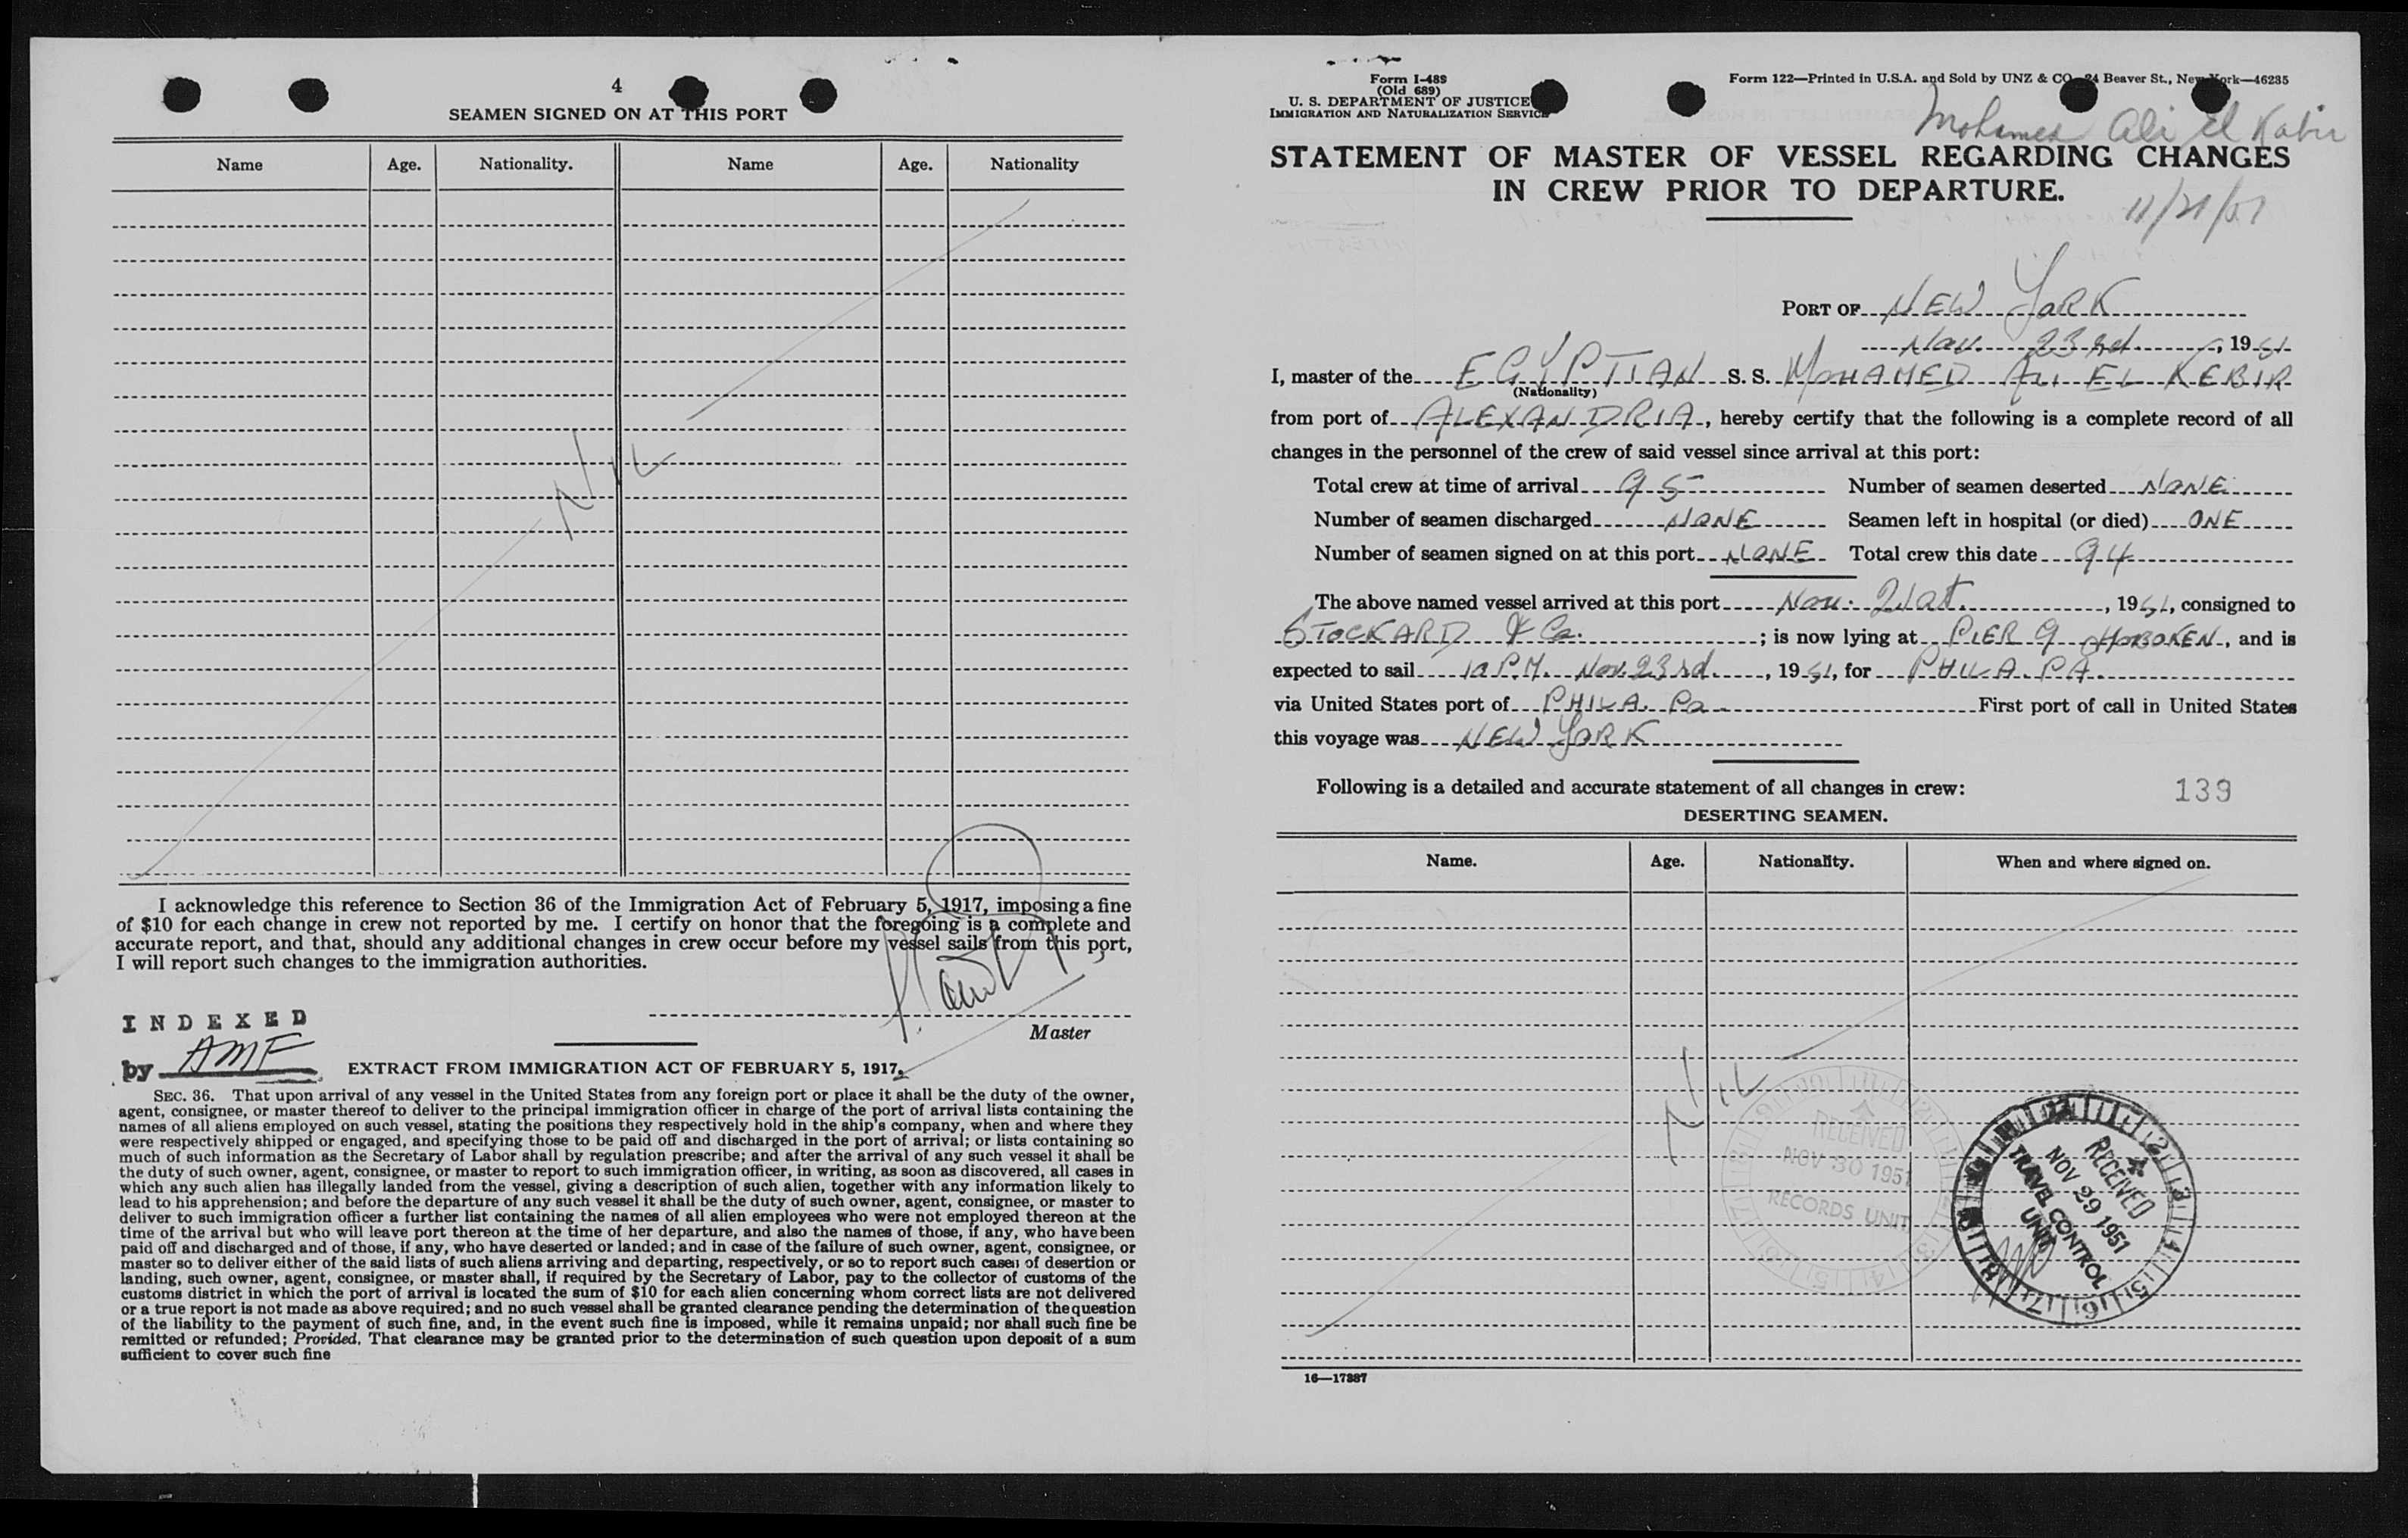 4
SEAMEN SIGNED ON AT THIS PORT
Name Age. Nationality. Name Age. Nationality
NIL
I acknowledge this reference to Section 36 of the Immigration Act of February 5, 1917, imposing a fine
of $10 for each change in crew not reported by me. I certify on honor that the foregoing is a complete and
accurate report, and that, should any additional changes in crew occur before my vessel sails from this port,
I will report such changes to the immigration authorities.
Master
INDEXED
by AMF
EXTRACT FROM IMMIGRATION ACT OF FEBRUARY 5, 1917.
SEC. 36. That upon arrival of any vessel in the United States from any foreign port or place it shall be the duty of the owner,
agent, consignee, or master thereof to deliver to the principal immigration officer in charge of the port of arrival lists containing the
names of all aliens employed on such vessel, stating the positions they respectively hold in the ship's company, when and where they
were respectively shipped or engaged, and specifying those to be paid off and discharged in the port of arrival; or lists containing so
much of such information as the Secretary of Labor shall by regulation prescribe; and after the arrival of any such vessel it shall be
the duty of such owner, agent, consignee, or master to report to such immigration officer, in writing, as soon as discovered, all cases in
which any such alien has illegally landed from the vessel, giving a description of such alien, together with any information likely to
lead to his apprehension; and before the departure of any such vessel it shall be the duty of such owner, agent, consignee, or master to
deliver to such immigration officer a further list containing the names of all alien employees who were not employed thereon at the
time of the arrival but who will leave port thereon at the time of her departure, and also the names of those, if any, who have been
paid off and discharged and of those, if any, who have deserted or landed; and in case of the failure of such owner, agent, consignee, or
master so to deliver either of the said lists of such aliens arriving and departing, respectively, or so to report such cases of desertion or
landing, such owner, agent, consignee, or master shall, if required by the Secretary of Labor, pay to the collector of customs of the
customs district in which the port of arrival is located the sum of $10 for each alien concerning whom correct lists are not delivered
or a true report is not made as above required; and no such vessel shall be granted clearance pending the determination of the question
of the liability to the payment of such fine, and, in the event such fine is imposed, while it remains unpaid; nor shall such fine be
remitted or refunded; Provided, That clearance may be granted prior to the determination of such question upon deposit of a sum
sufficient to cover such fine
Form I-489
(Old 689)
U. S. DEPARTMENT OF JUSTICE
IMMIGRATION AND NATURALIZATION SERVICE
Form 122—Printed in U.S.A. and Sold by UNZ & CO 24 Beaver St., New York—46235
Mohamed Ali El Kabir
STATEMENT OF MASTER OF VESSEL REGARDING CHANGES
IN CREW PRIOR TO DEPARTURE.
11/21/51
PORT OF NEW YORK
Nov. 23rd, 1951
I, master of the EGYPTIAN S. S. MOHAMED ALI EL KEBIR
(Nationality)
from port of ALEXANDRIA, hereby certify that the following is a complete record of all
changes in the personnel of the crew of said vessel since arrival at this port:
Total crew at time of arrival 95 Number of seamen deserted NONE
Number of seamen discharged NONE Seamen left in hospital (or died) ONE
Number of seamen signed on at this port NONE Total crew this date 94
The above named vessel arrived at this port Nov. 21st, 1951, consigned to
STOCKARD & Co.; is now lying at PIER 9 HOBOKEN, and is
expected to sail 10 P.M. Nov. 23rd, 1951, for PHILA. PA.
via United States port of PHILA. Pa. First port of call in United States
this voyage was NEW YORK
Following is a detailed and accurate statement of all changes in crew:
139
DESERTING SEAMEN.
Name. Age. Nationality. When and where signed on.
NIL
RECEIVED
NOV 30 1951
RECORDS UNIT
RECEIVED
NOV 29 1951
TRAVEL CONTROL
UNIT
16—17887